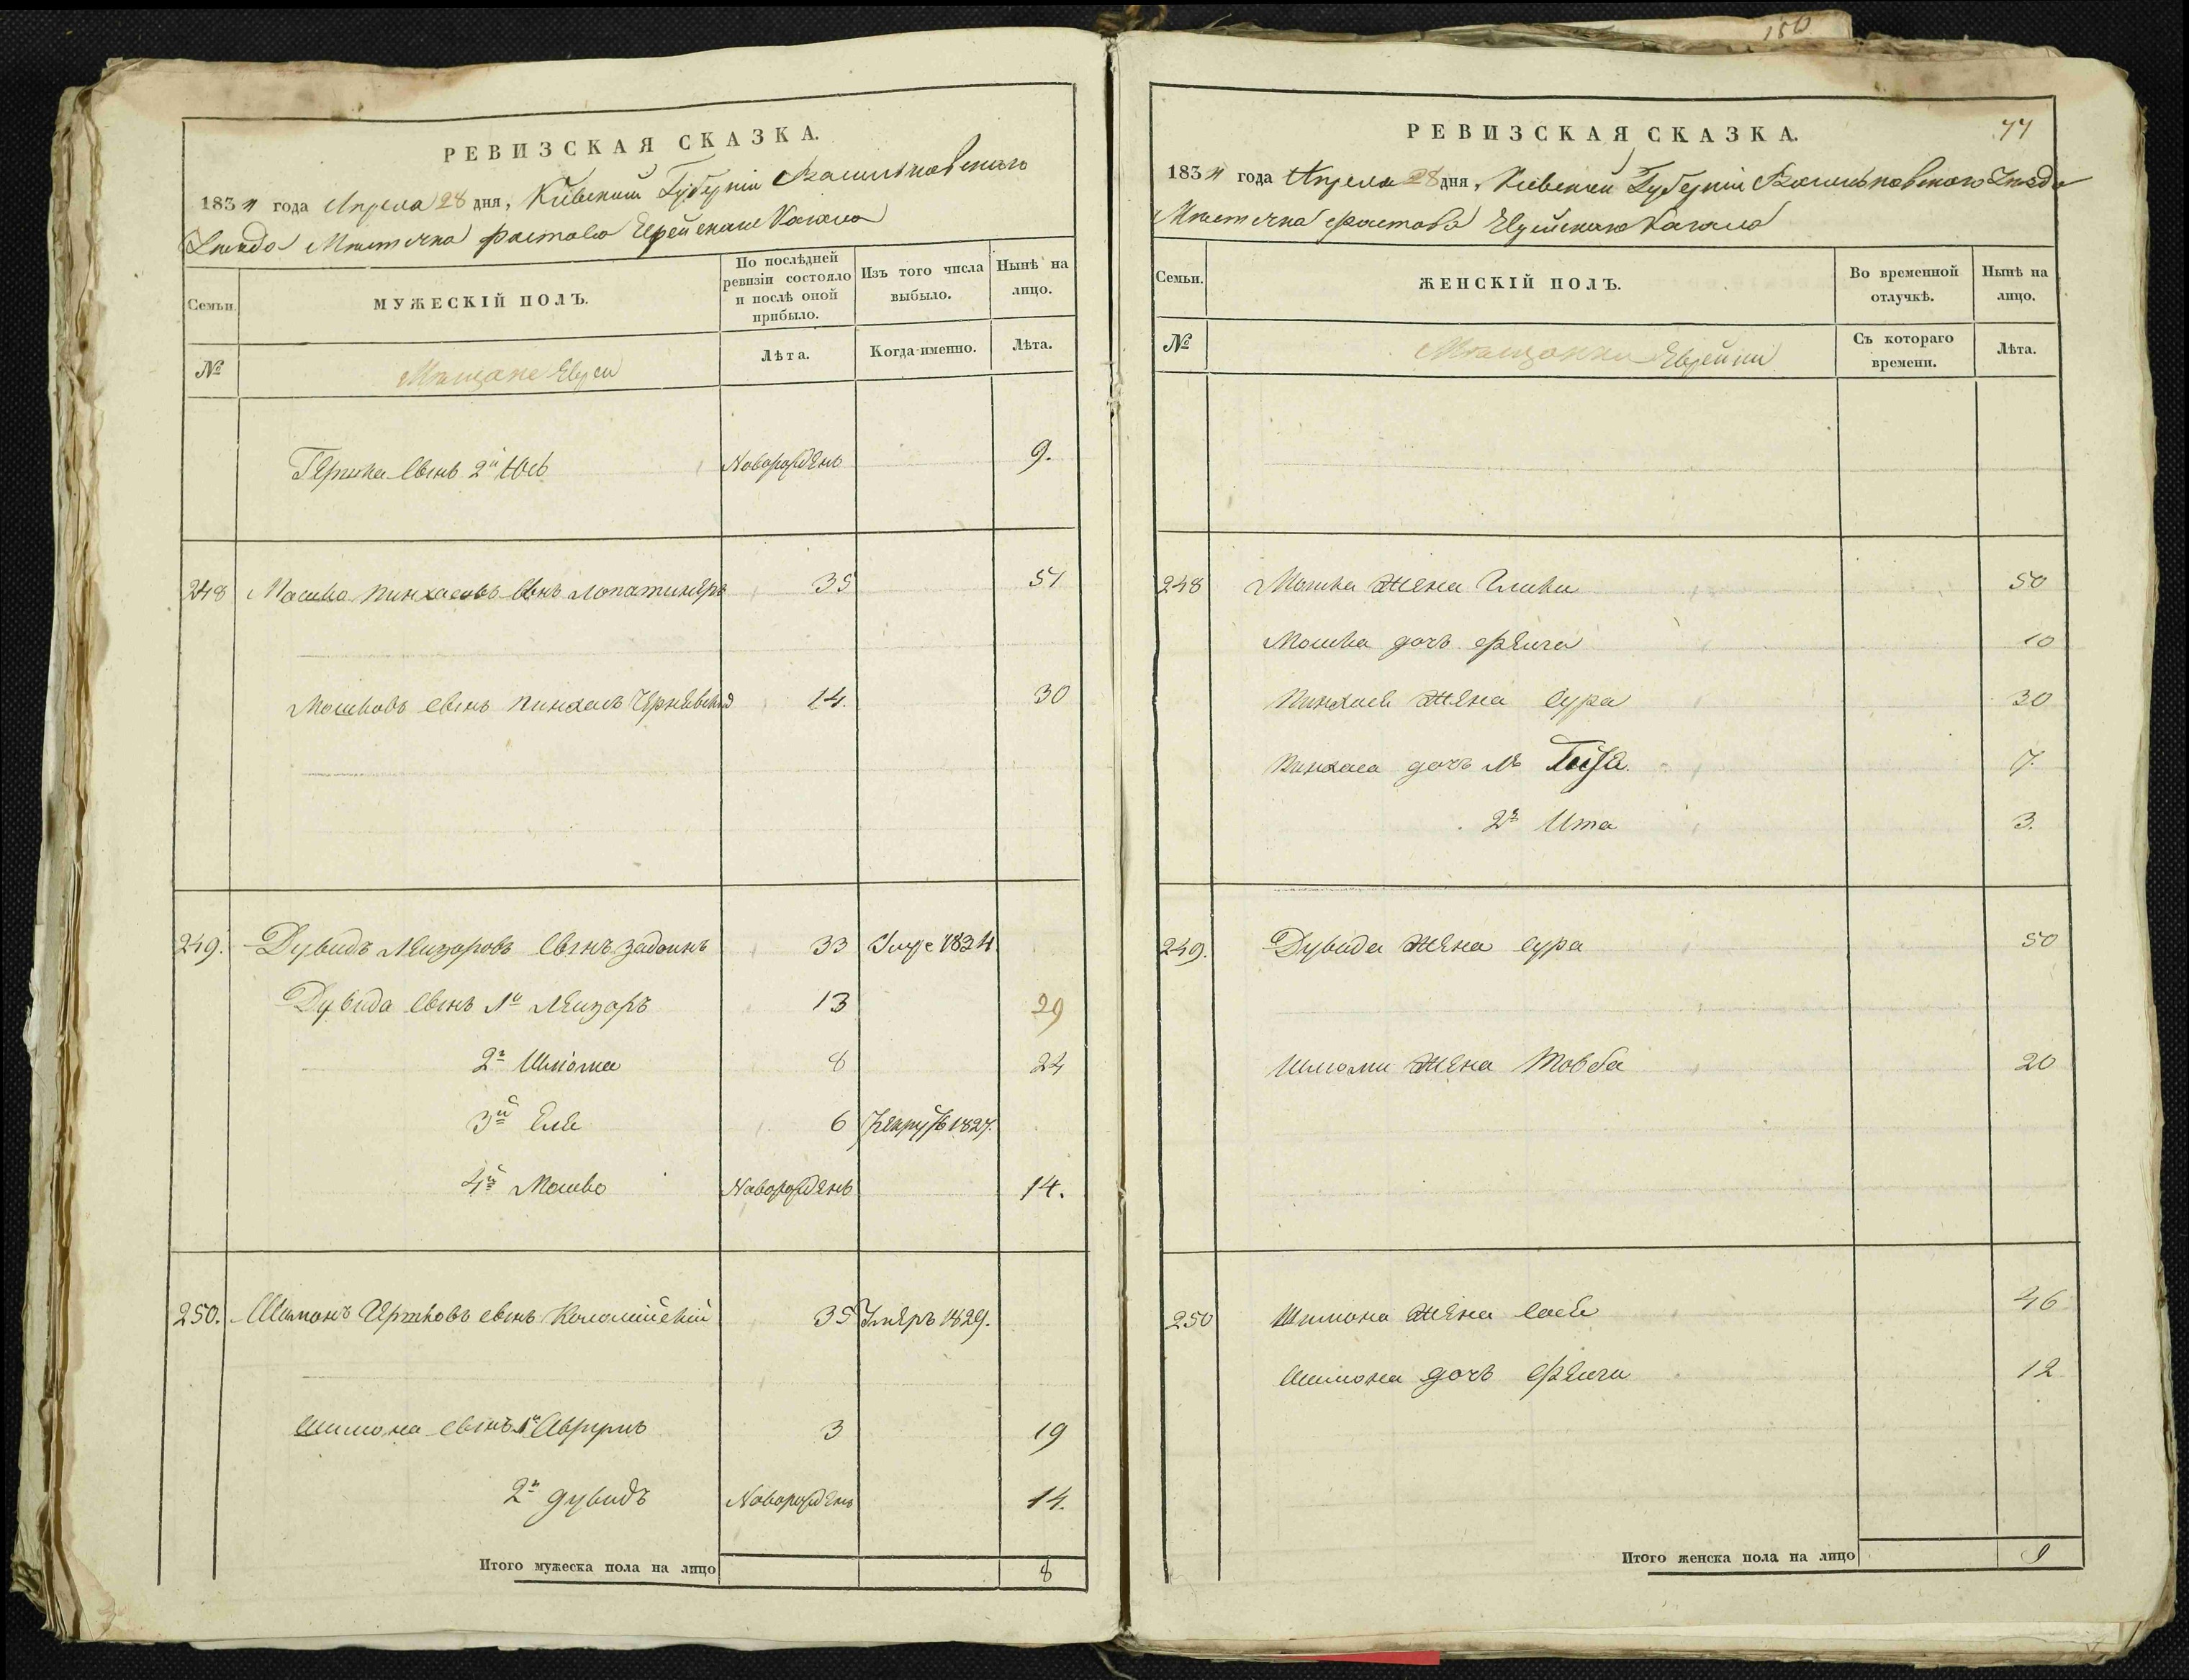 150
РЕВИЗСКАЯ СКАЗКА.
1834 года Апреля 28 дня, Кіевской Губерніи Васильковского
Уезда Мѣстечка Фастова Еврейскаго Кагала
Семьи.
МУЖЕСКІЙ ПОЛЪ.
По послѣдней ревизіи состояло и послѣ оной прибыло.
Изъ того числа выбыло.
Нынѣ на лицо.
№
Мѣщане Евреи
Лѣта.
Когда именно.
Лѣта.
Гершка сынъ 2й Іось Новорожденъ 9.
248 Мошко Пинхасовъ сынъ Лопатинеръ 35 51
Мошковъ сынъ Пинхасъ Чернявскій 14. 30
249. Дувидъ Лейзоровъ сынъ Задоинъ 33 Умре 1834
Дувида сынъ 1й Лейзоръ 13 29
2й Шлома 8 24
3й Еле 6 Рекрутъ 1827.
4й Мошко Новорожденъ 14.
250. Шимонъ Гершковъ сынъ Коломійскій 35 Умеръ 1829.
Шимона сынъ 1й Аврумъ 3 19
2й Дувидъ Новорожденъ 14.
Итого мужеска пола на лицо 8
РЕВИЗСКАЯ СКАЗКА.
77
1834 года Апреля 28 дня, Кіевской Губерніи Васильковского Уезда
Мѣстечка Фастова Еврейскаго Кагала
Семьи.
ЖЕНСКІЙ ПОЛЪ.
Во временной отлучкѣ.
Нынѣ на лицо.
№
Мѣщанки Еврейки
Съ котораго времени.
Лѣта.
248 Мошка жена Чипа 50
Мошка дочь Фейга 10
Пинхаса жена Сура 30
Пинхаса дочь 1я 7.
2я Ита 3.
249. Дувида жена Сура 50
Шломи жена Товба 20
250 Шимона жена Сося 46
Шимона дочь Фейга 12
Итого женска пола на лицо 9